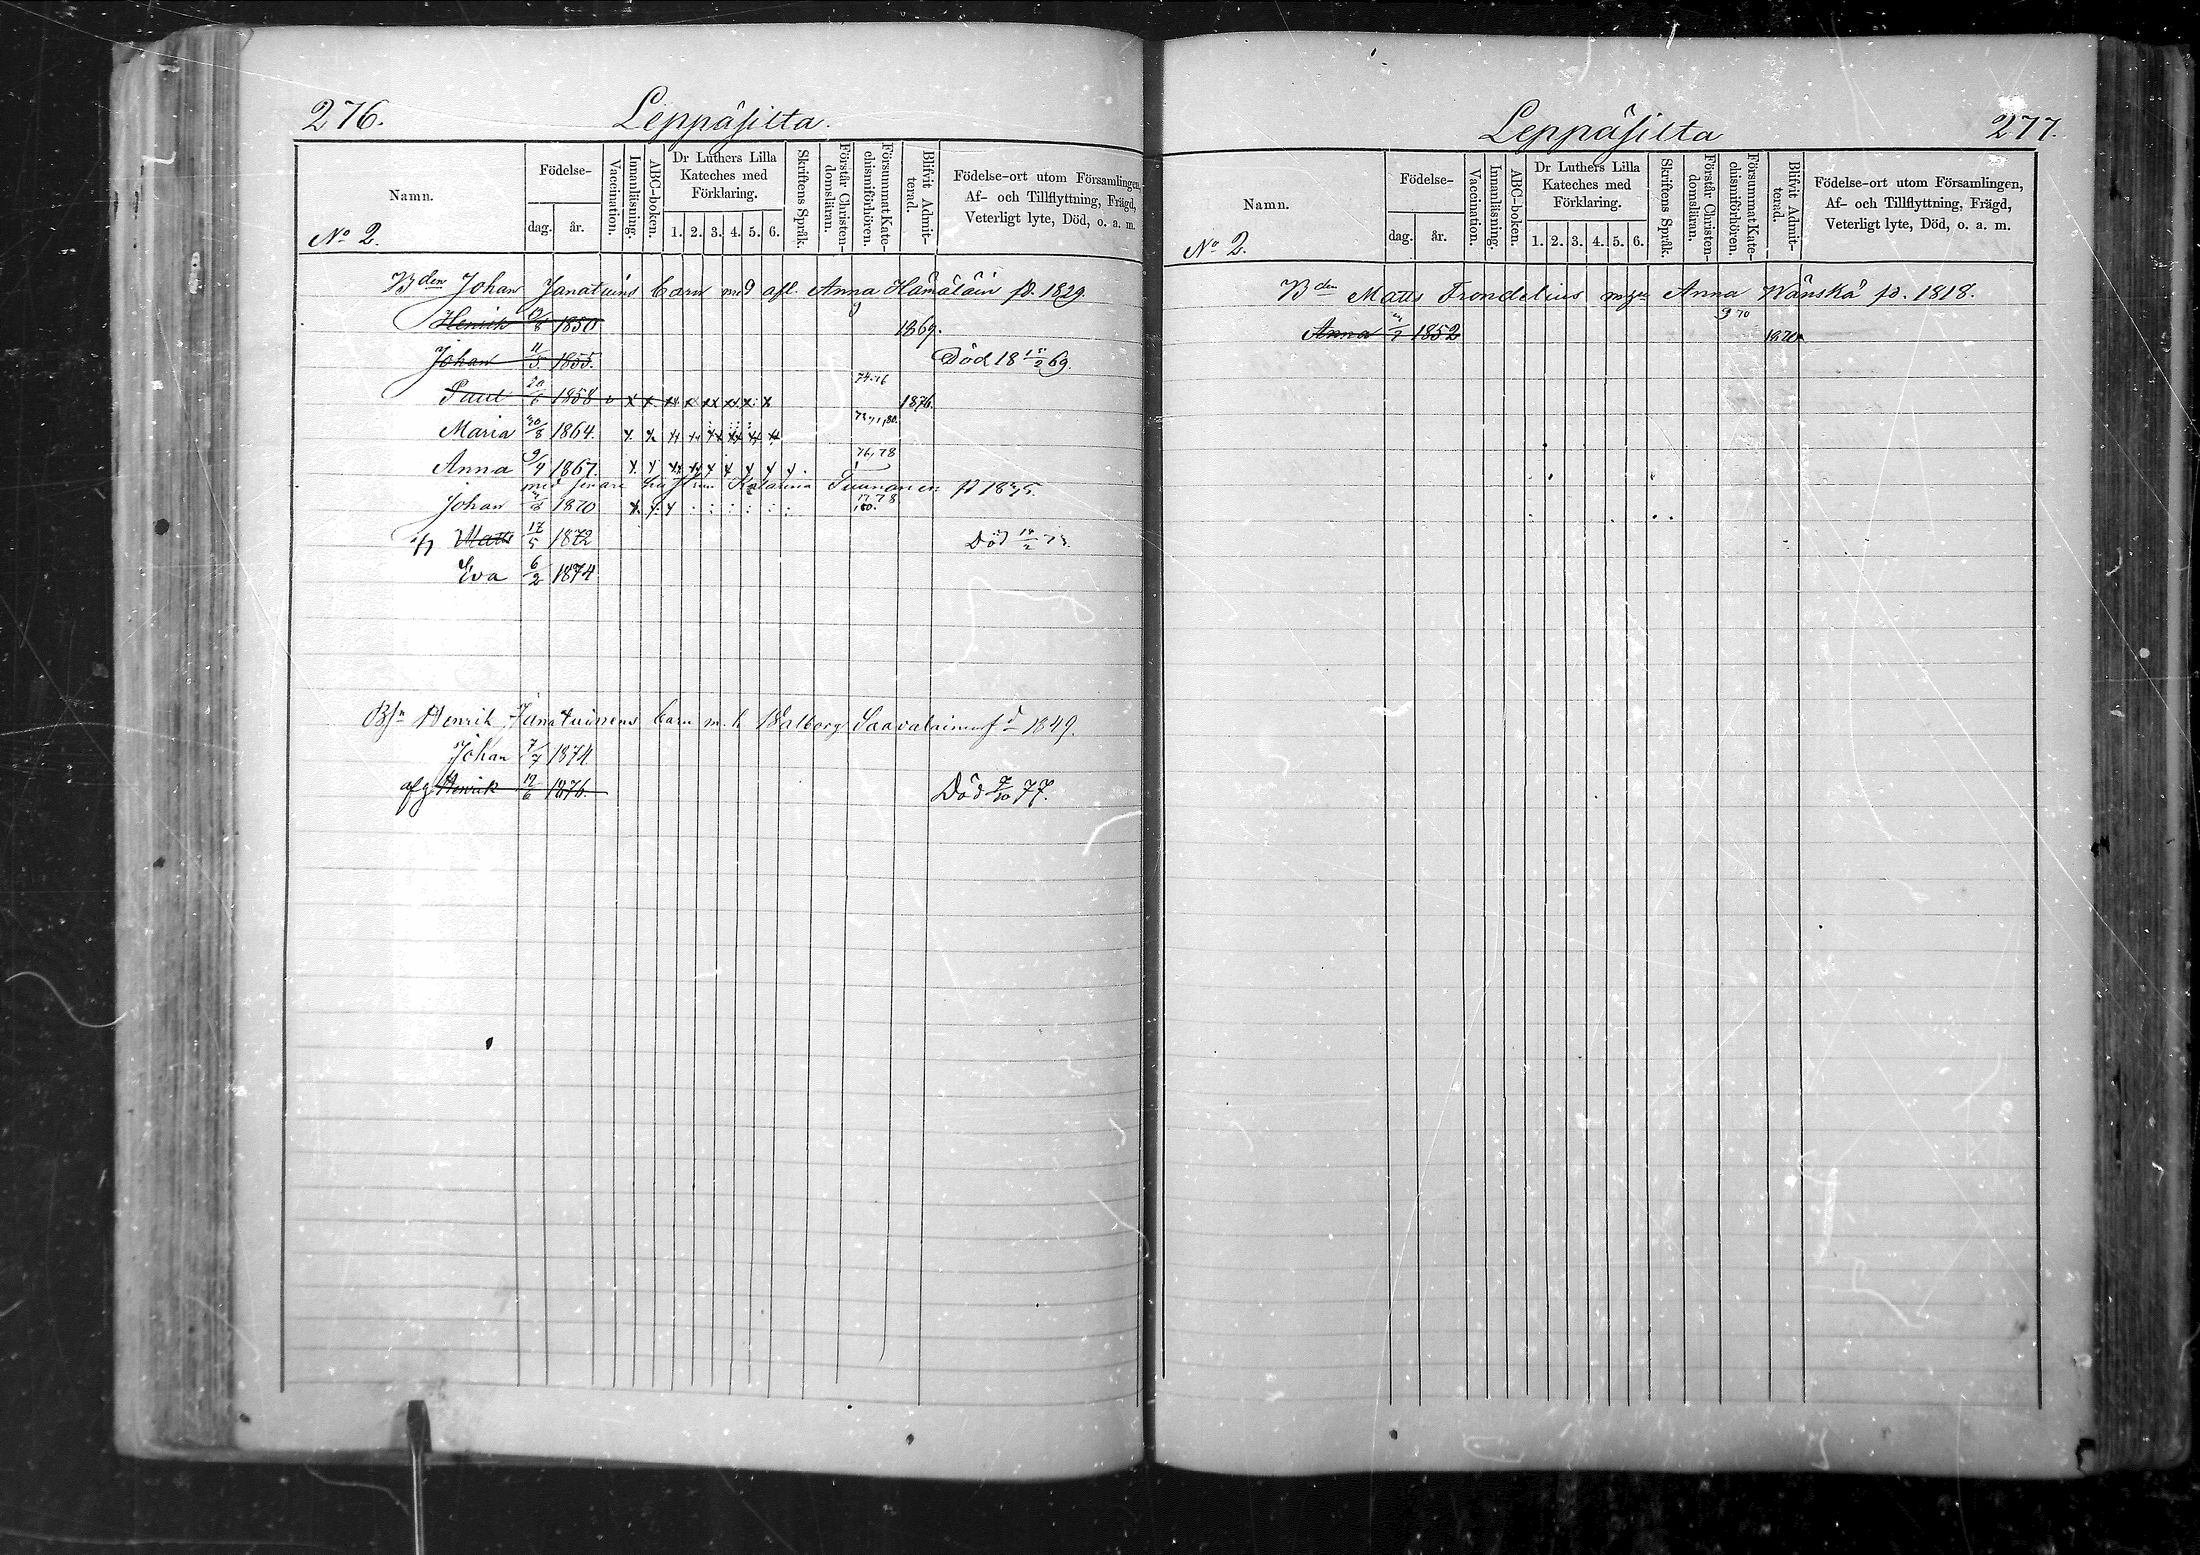 276. Leppäsilta.
Namn.
Födelse-
dag. år.
Vaccination.
Innanläsning.
ABC-boken.
Dr Luthers Lilla
Kateches med
Förklaring.
1. 2. 3. 4. 5. 6.
Skriftens Språk.
Förstår Christen-
domsläran.
Försummat Kate-
chismiförhören.
Blifvit Admit-
terad.
Födelse-ort utom Församlingen,
Af- och Tillflyttning, Frägd,
Veterligt lyte, Död, o. a. m.
No 2.
Bden Johan Janatuins barn med afl. Anna Hämäläin fd. 1829.
Henrik 1850 1869.
Johan 11/5 1855. Död 18 69.
74.76
Paul 1858 x x x x x x x x 1876.
Maria 30/8 1864.
76, 78
Anna 9/4 1867.
med senare hustrun Katarina Tuunanen fd 1835.
Johan 1870
Matts 17/5 1872 Död
Eva 6/2 1874
Henrik Janatuinens barn m. h. Walborg Saavalainen fd 1849.
Johan 7/7 1874
afg Henrik 19/6 1876. Död 77.
Leppäsilta 277.
Namn.
Födelse-
dag. år.
Vaccination.
Innanläsning.
ABC-boken.
Dr Luthers Lilla
Kateches med
Förklaring.
1. 2. 3. 4. 5. 6.
Skriftens Språk.
Förstår Christen-
domsläran.
Försummat Kate-
chismiförhören.
Blifvit Admit-
terad.
Födelse-ort utom Församlingen,
Af- och Tillflyttning, Frägd,
Veterligt lyte, Död, o. a. m.
No 2.
Bden Matts Trondelius Anna Wänskä fd. 1818.
Anna 1852 1870.